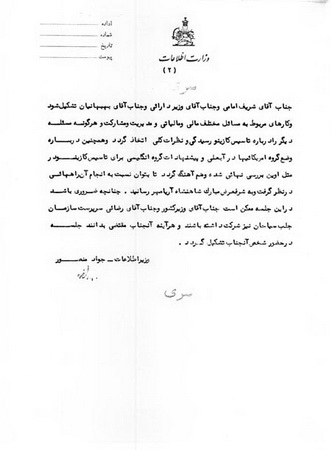 اداره
شماره
تاریخ
پیوست
وزارت اطلاعات
(۲)
سری
جناب آقای شریف امامی وجناب آقای وزیر دارائی وجناب آقای بهبهانیان تشکیل شود
وکارهای مربوط به مسائل مختلف مالی ومالیاتی و مدیریت ومشارکت و هرگونه مسئله
دیگر راد رباره تاسیس کازینو رسیدگی و نظرات کلی اتخاذ گردد وهمچنین د رباره
وضع گروه امریکائیها د ر آبعلی و پیشنهادات گروه انگلیسی برای تاسیس کازینو د ر
متل اوین بررسی نهائی شده وهم آهنگ گردد تا بتوان نسبت به انجام آن راههائی
د رنظر گرفت وبه شرفعرض مبارک شاهنشاه آریامهر رسانید . چنانچه ضروری باشد
د ر این جلسه ممکن است جناب آقای وزیرکشور وجناب آقای رضائی سرپرست سازمان
جلب سیاحان نیز شرکت داشته باشند و هرآینه آنجناب مقتضی بدانند جلسه
د رحضور شخص آنجناب تشکیل گردد .
وزیر اطلاعات - جواد منصور
سری